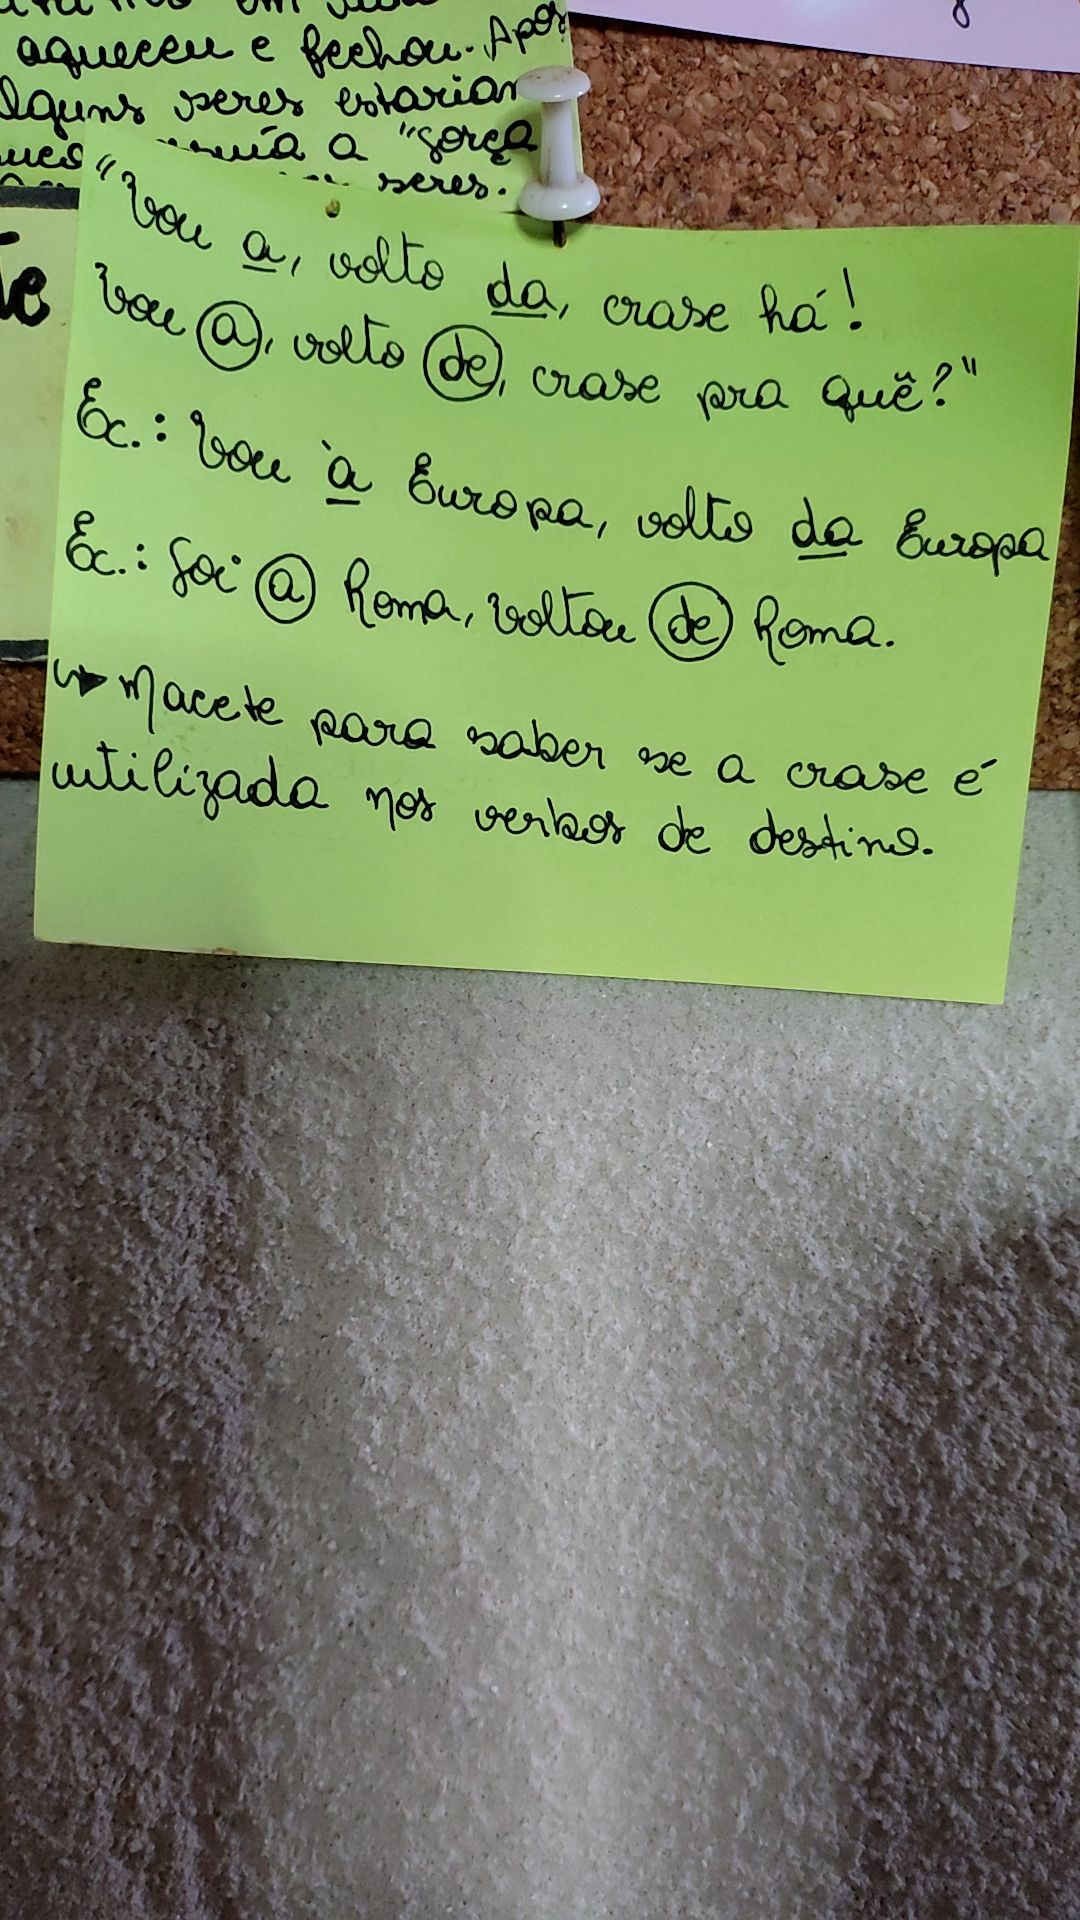 aqueceu e fechou. Após
alguns seres estariam
a "força
seres.
te
"Vou a, volto da, crase há!
Vou a, volto de, crase pra quê?"
Ex.: Vou à Europa, volto da Europa
Ex.: foi a Roma, voltou de Roma.
↳ Macete para saber se a crase é
utilizada nos verbos de destino.